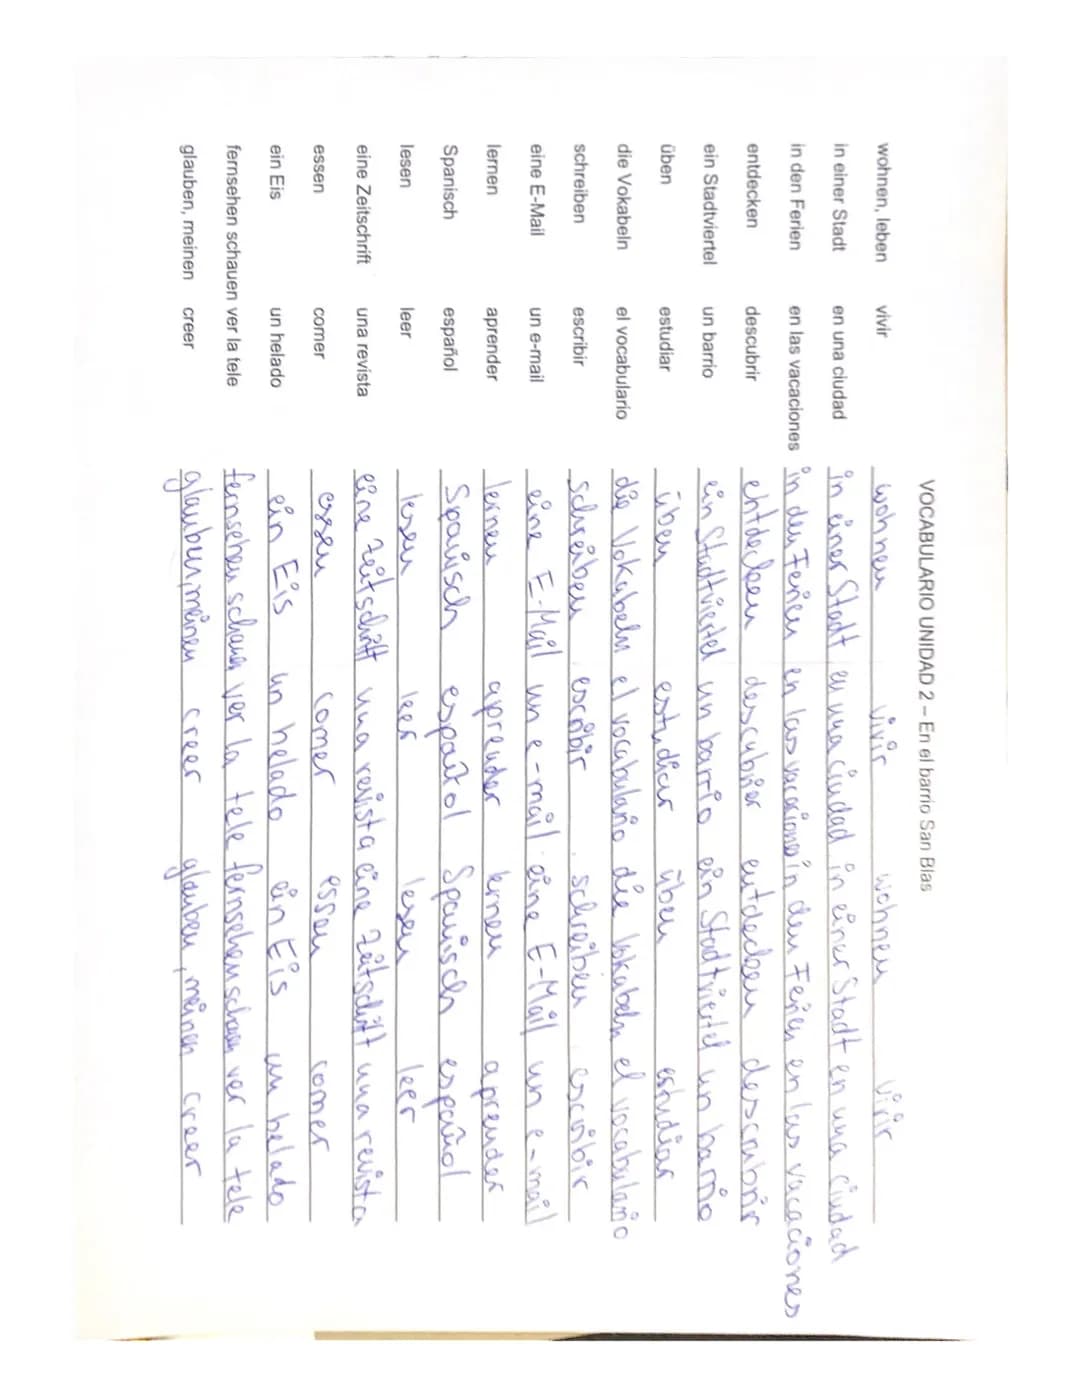 VOCABULARIO UNIDAD 2 – En el barrio San Blas
wohnen, leben vivir wohnen vivir wohnen vivir
in einer Stadt en una ciudad in einer Stadt en una ciudad in einer Stadt en una ciudad
in den Ferien en las vacaciones in den Ferien en las vacaciones in den Ferien en las vacaciones
entdecken descubrir entdecken descubrier entdecken descrubrir
ein Stadtviertel un barrio ein Stadtviertel un barrio ein Stadtviertel un barrio
üben estudiar üben estudiar üben estudiar
die Vokabeln el vocabulario die Vokabeln el vocabulario die Vokabeln el vocabulario
schreiben escribir schreiben escribir schreiben escribir
eine E-Mail un e-mail eine E-Mail un e-mail eine E-Mail un e-mail
lernen aprender lernen aprender lernen aprender
Spanisch español Spanisch español Spanisch español
lesen leer lesen leer lesen leer
eine Zeitschrift una revista eine Zeitschrift una revista eine Zeitschrift una revista
essen comer essen comer essen comer
ein Eis un helado ein Eis un helado ein Eis un helado
fernsehen schauen ver la tele fernsehen schauen ver la tele fernsehen schauen ver la tele
glauben, meinen creer glauben, meinen creer glauben, meinen creer